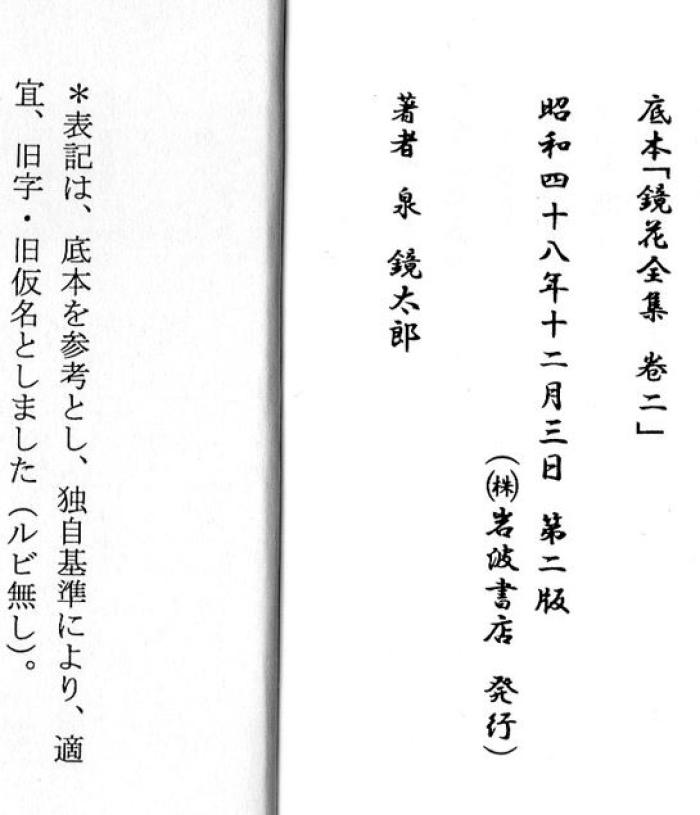 底本「鏡花全集　巻二」
昭和四十八年十二月三日　第二版
（㈱岩波書店　発行）
著者　泉　鏡太郎
＊表記は、底本を参考とし、独自基準により、適
宜、旧字・旧仮名としました（ルビ無し）。